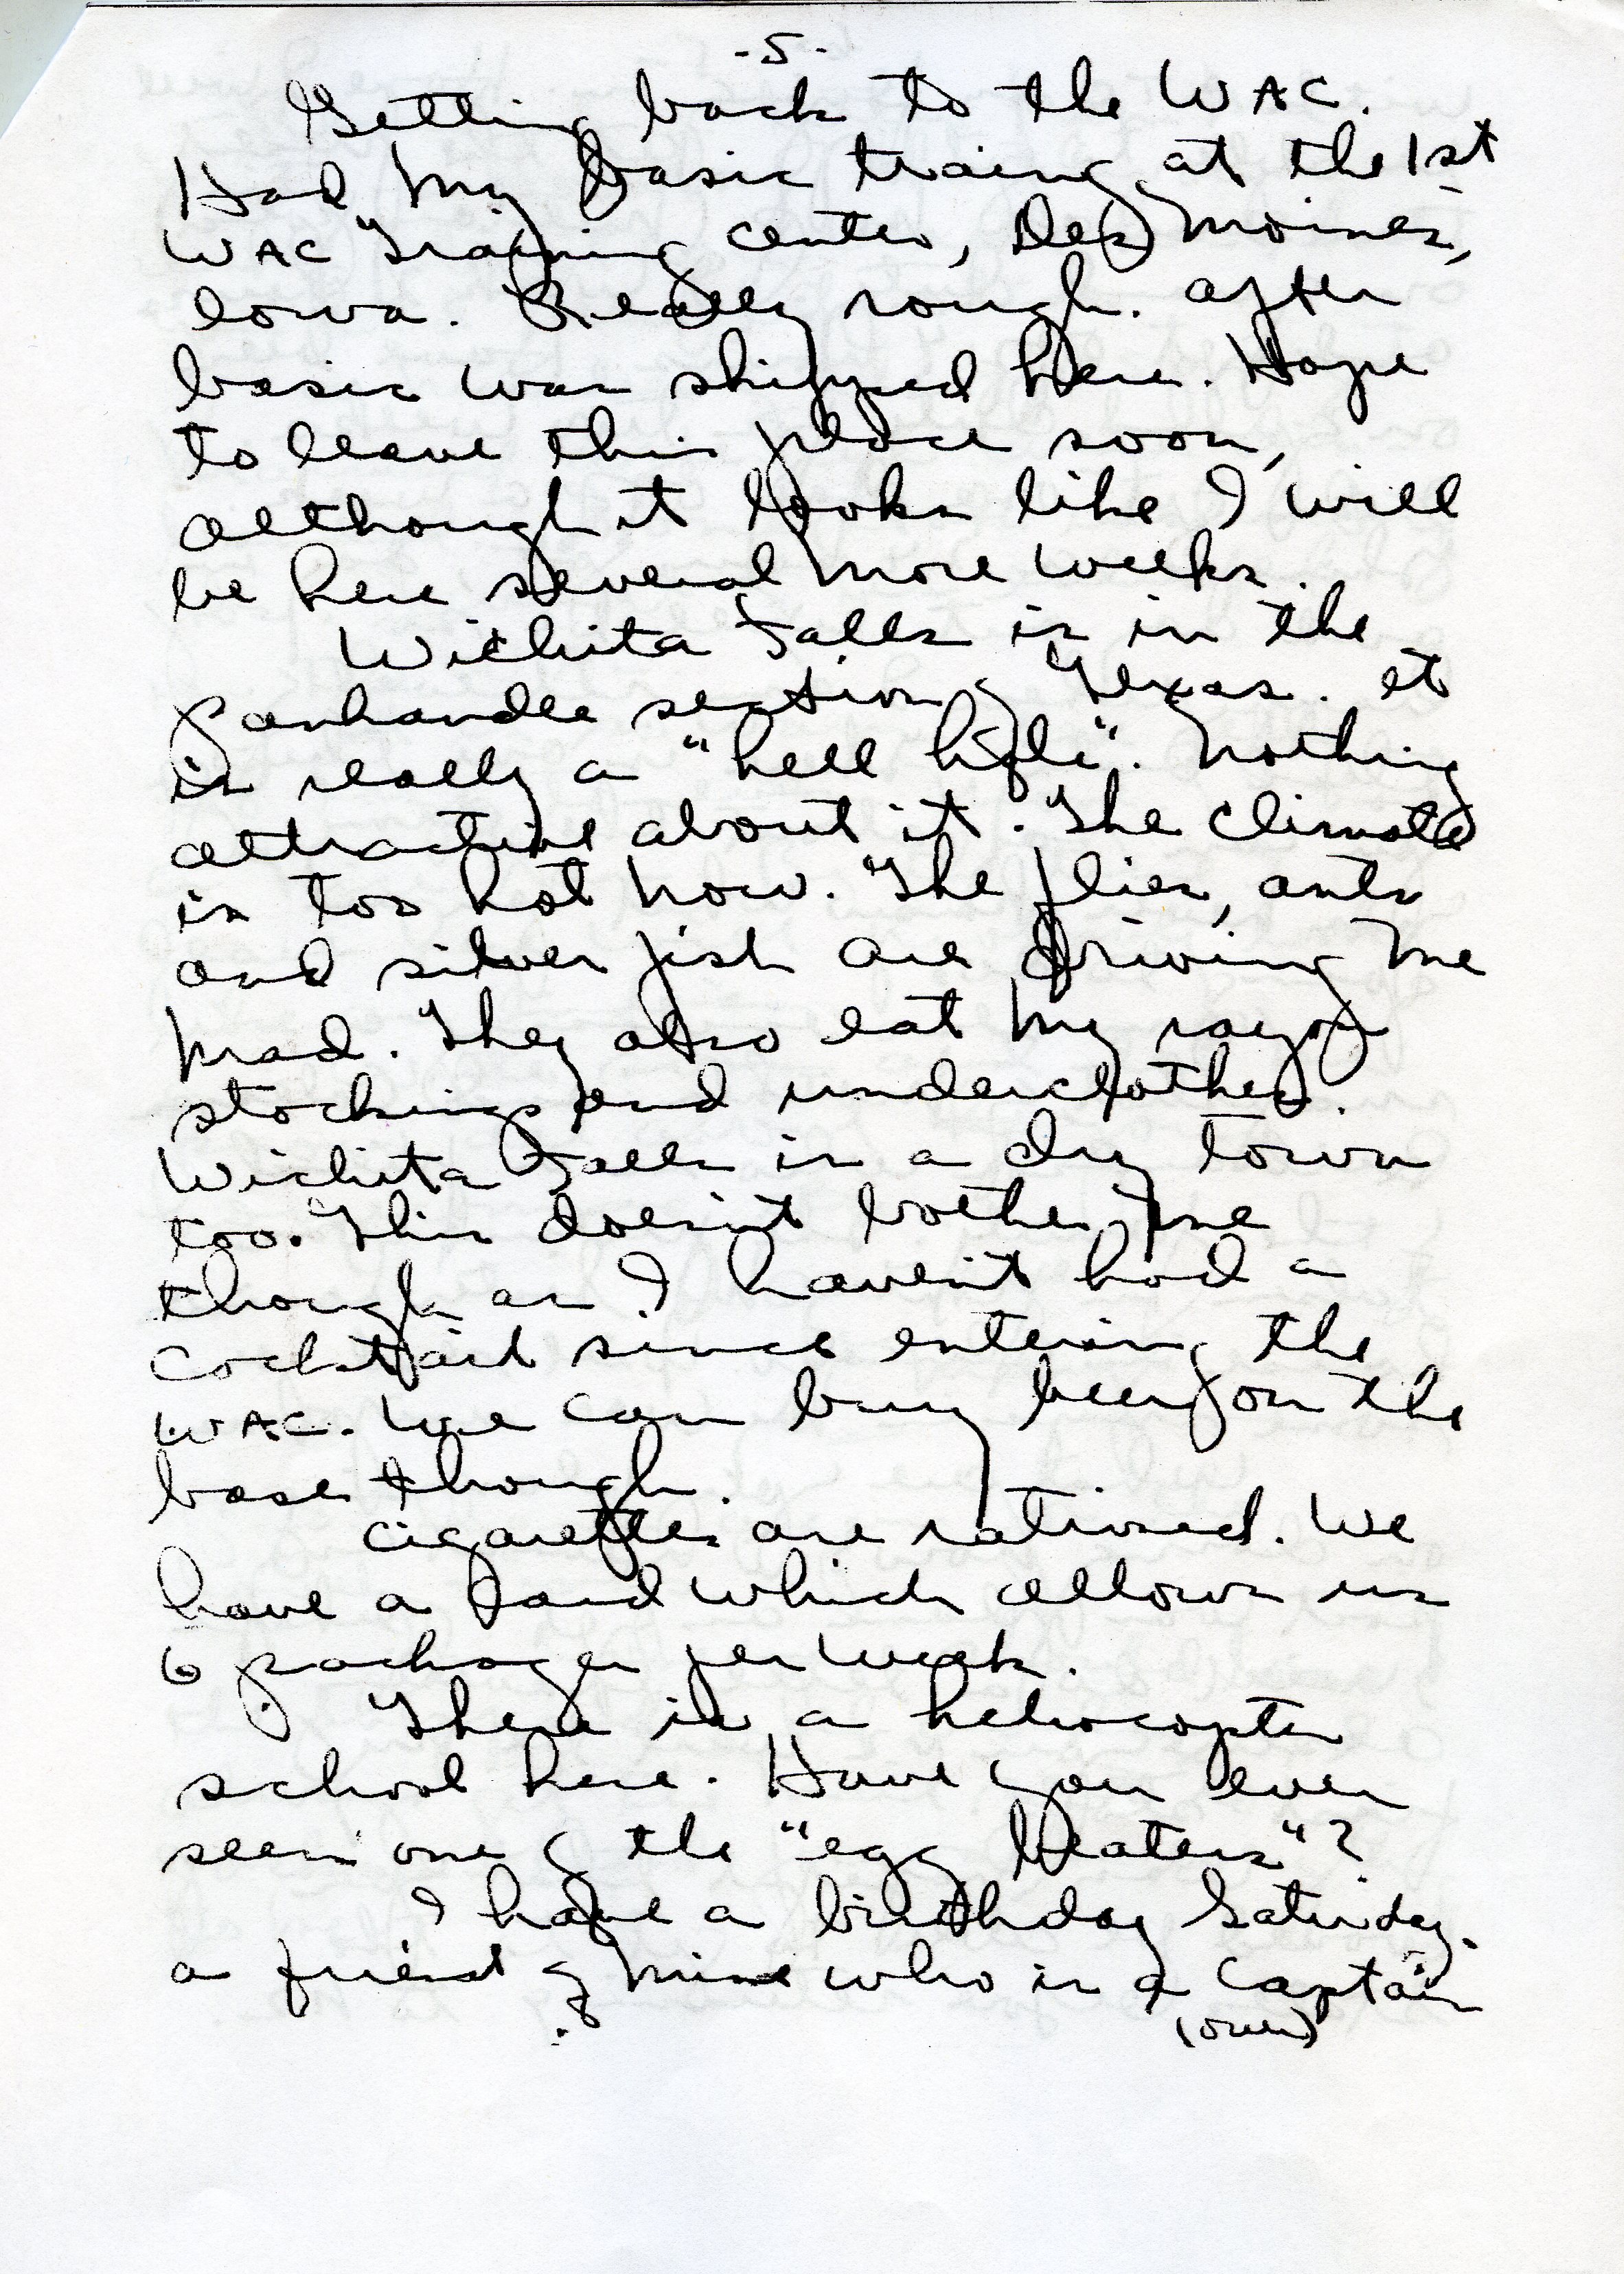 -5-
Getting back to the WAC.
Had my basic traing at the 1st
WAC Training Center, Des Moines,
Iowa. Really rough. After
basic was shipped here. Hope
to leave this place soon,
although it looks like I will
be here several more weeks.
Wichita Falls is in the
panhandle section of Texas. It
is really a "hell hole". Nothing
attractive about it. The climate
is too hot now. The flies, ants
and silver fish are driving me
mad. They also eat my rayon
stockings and underclothes.
Wichita Falls is a dry town
too. This doesn't bother me
though as I haven't had a
cocktail since entering the
WAC. We can buy beer on the
base though.
Cigarettes are rationed. We
have a card which allows us
6 packages per week.
There is a heliocopter
school here. Have you ever
seen one of the "egg beaters"?
I have a birthday Saturday.
A friend of mine who is a Captain
(over)